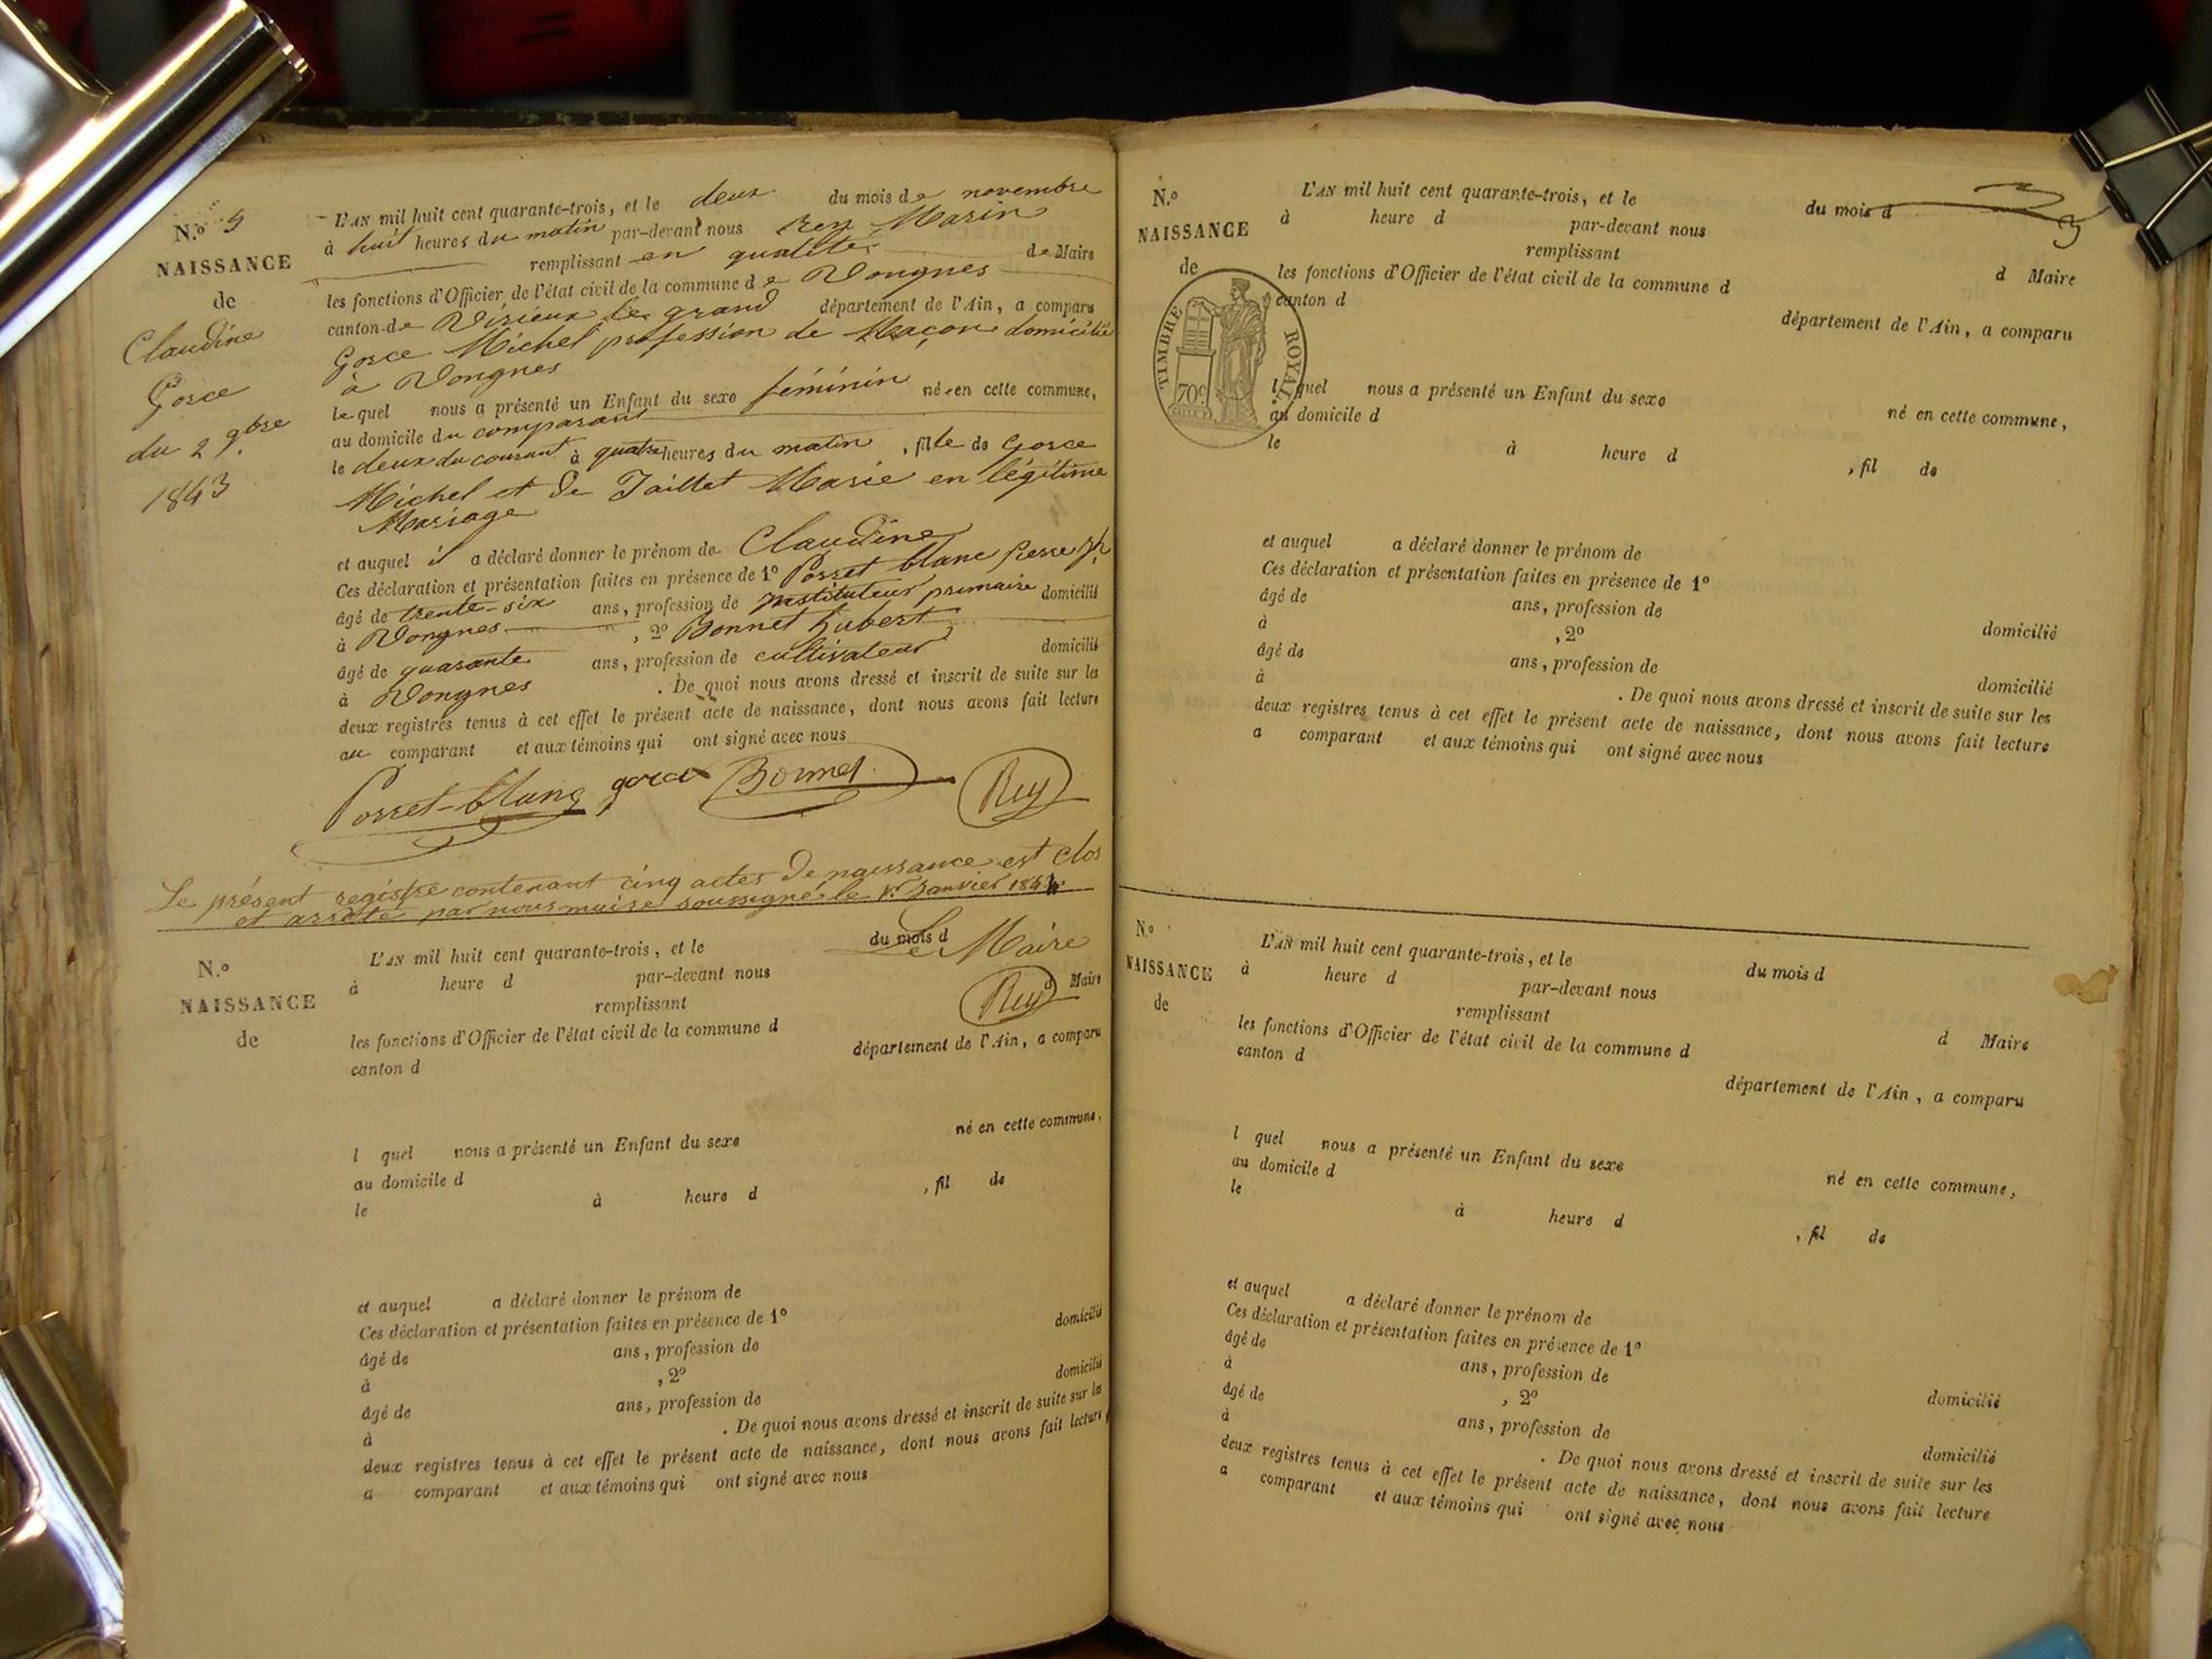 N.º 5
NAISSANCE
de
Claudine
Gorce
du 2 9bre
1843
L'AN mil huit cent quarante-trois, et le deux du mois de novembre
à huit heures du matin par-devant nous Rey Marin
remplissant en qualité de Maire
les fonctions d'Officier de l'état civil de la commune de Vongnes
canton de Virieux le grand département de l'Ain, a comparu
Gorce Michel profession de Maçon domicilié
à Vongnes
lequel nous a présenté un Enfant du sexe féminin né en cette commune,
au domicile du comparant
le deux du courant à quatre heures du matin, fille de Gorce
Michel et de Jaillet Marie en légitime
Mariage
et auquel il a déclaré donner le prénom de Claudine
Ces déclaration et présentation faites en présence de 1º Porret blanc pierre
âgé de trente-six ans, profession de Instituteur primaire domicilié
à Vongnes, 2º Bonnet hubert
âgé de quarante ans, profession de cultivateur domicilié
à Vongnes. De quoi nous avons dressé et inscrit de suite sur les
deux registres tenus à cet effet le présent acte de naissance, dont nous avons fait lecture
au comparant et aux témoins qui ont signé avec nous
Porret-blanc gorce Bonnet Rey
Le présent registre contenant cinq actes de naissance est clos
et arrêté par nous maire soussigné le 1er Janvier 1844
Le Maire
Rey
N.º
NAISSANCE
de
L'AN mil huit cent quarante-trois, et le du mois d
à heure d par-devant nous
remplissant d Maire
les fonctions d'Officier de l'état civil de la commune d
canton d département de l'Ain, a comparu
l quel nous a présenté un Enfant du sexe né en cette commune,
au domicile d
le à heure d , fil de
et auquel a déclaré donner le prénom de
Ces déclaration et présentation faites en présence de 1º
âgé de ans, profession de domicilié
à , 2º
âgé de ans, profession de domicilié
à . De quoi nous avons dressé et inscrit de suite sur les
deux registres tenus à cet effet le présent acte de naissance, dont nous avons fait lecture
a comparant et aux témoins qui ont signé avec nous
N.º
NAISSANCE
de
TIMBRE ROYAL
70c.
L'AN mil huit cent quarante-trois, et le du mois d
à heure d par-devant nous
remplissant d Maire
les fonctions d'Officier de l'état civil de la commune d
canton d département de l'Ain, a comparu
l quel nous a présenté un Enfant du sexe né en cette commune,
au domicile d
le à heure d , fil de
et auquel a déclaré donner le prénom de
Ces déclaration et présentation faites en présence de 1º
âgé de ans, profession de domicilié
à , 2º
âgé de ans, profession de domicilié
à . De quoi nous avons dressé et inscrit de suite sur les
deux registres tenus à cet effet le présent acte de naissance, dont nous avons fait lecture
a comparant et aux témoins qui ont signé avec nous
N.º
NAISSANCE
de
L'AN mil huit cent quarante-trois, et le du mois d
à heure d par-devant nous
remplissant d Maire
les fonctions d'Officier de l'état civil de la commune d
canton d département de l'Ain, a comparu
l quel nous a présenté un Enfant du sexe né en cette commune,
au domicile d
le à heure d , fil de
et auquel a déclaré donner le prénom de
Ces déclaration et présentation faites en présence de 1º
âgé de ans, profession de domicilié
à , 2º
âgé de ans, profession de domicilié
à . De quoi nous avons dressé et inscrit de suite sur les
deux registres tenus à cet effet le présent acte de naissance, dont nous avons fait lecture
a comparant et aux témoins qui ont signé avec nous